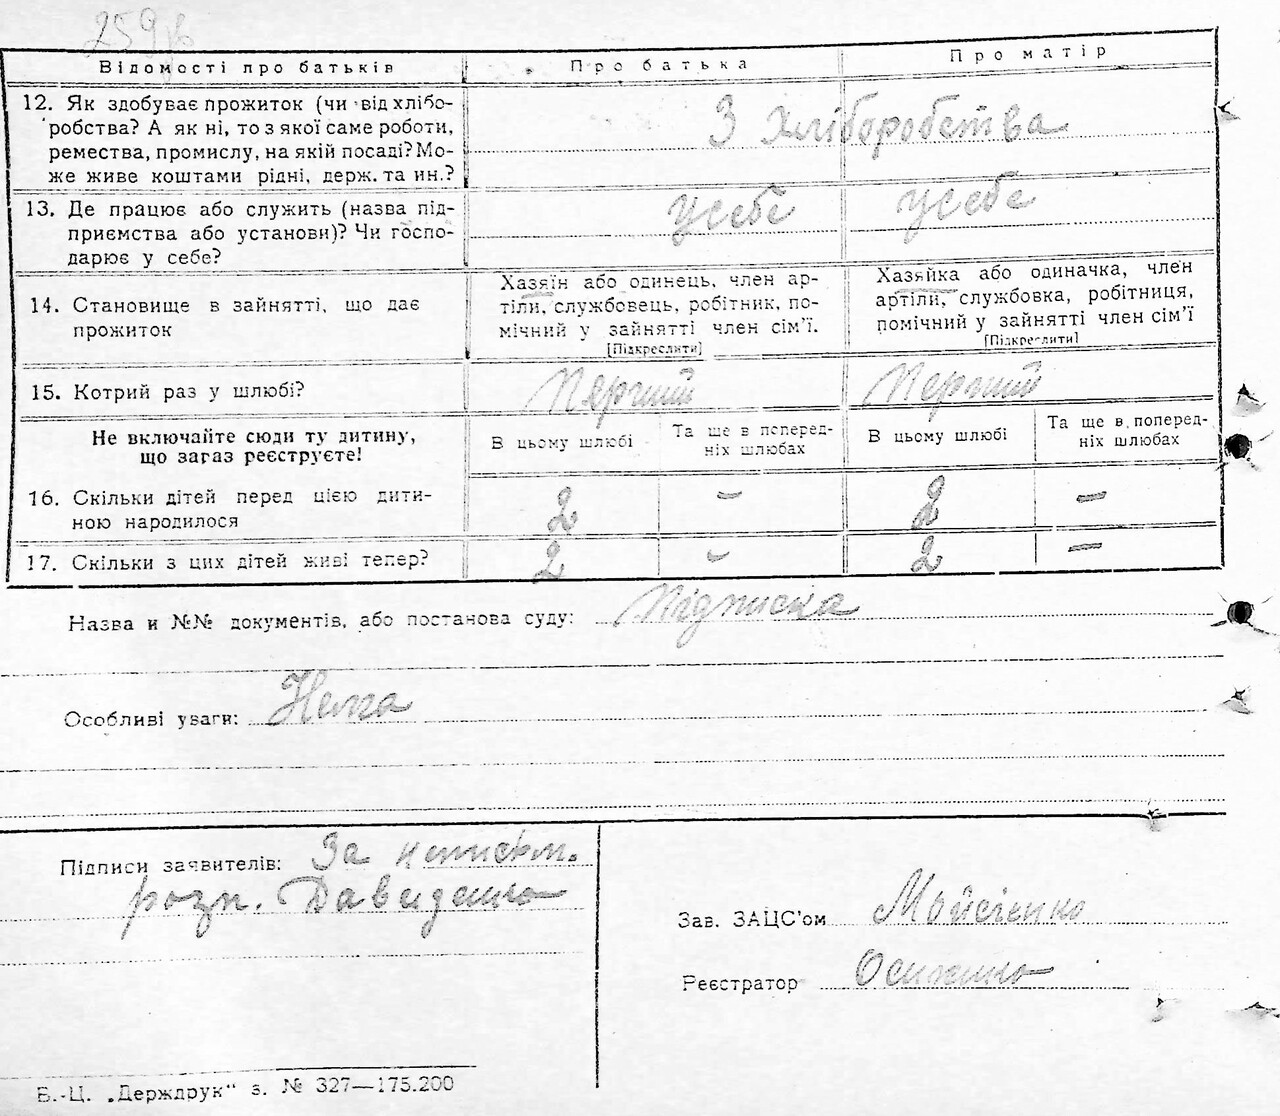 259
Відомості про батьків Про батька Про матір
12. Як здобуває прожиток (чи від хлібо-
робства? А як ні, то з якої саме роботи,
ремества, промислу, на якій посаді? Мо-
же живе коштами рідні, держ. та ин.?
З хліборобства
13. Де працює або служить (назва під-
приємства або установи)? Чи госпо-
дарює у себе?
усебе усебе
14. Становище в зайнятті, що дає
прожиток
Хазяїн або одинець, член ар-
тіли, службовець, робітник, по-
мічний у зайнятті член сім'ї.
[Підкреслити]
Хазяйка або одиначка, член
артіли, службовка, робітниця,
помічний у зайнятті член сім'ї
[Підкреслити]
15. Котрий раз у шлюбі? Перший Перший
Не включайте сюди ту дитину,
що зараз реєструєте!
В цьому шлюбі
Та ще в поперед-
ніх шлюбах
В цьому шлюбі
Та ще в поперед-
ніх шлюбах
16. Скільки дітей перед цією дити-
ною народилося
2 – 2 –
17. Скільки з цих дітей живі тепер? 2 – 2 –
Назва и №№ документів, або постанова суду: Підписка
Особливі уваги: Нема
Підписи заявителів: За неписьм.
розп. Давиденко
Зав. ЗАЦС'ом Мойсієнко
Реєстратор
Б.-Ц. „Держдрук" з. № 327—175.200